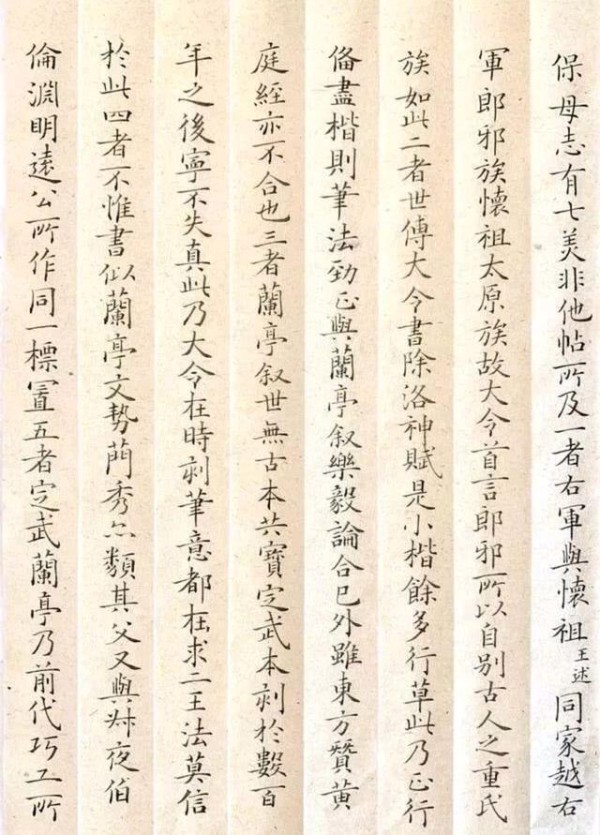 保母志有七美非他帖所及一者右軍與懷祖王述同家越右
軍郎邪族懷祖太原族故大令首言郎邪所以自別古人之重氏
族如此二者世傳大令書除洛神賦是小楷餘多行草此乃正行
俻盡楷則筆法勁正與蘭亭叙樂毅論合已外雖東方贊黃
庭經亦不合也三者蘭亭叙世無古本共寶定武本刻於數百
年之後寧不失真此乃大令在時刻筆意都在求二王法莫信
於此四者不惟書似蘭亭文勢蕳秀亦類其父又與叔夜伯
倫淵明遠公所作同一標置五者定武蘭亭乃前代巧工所